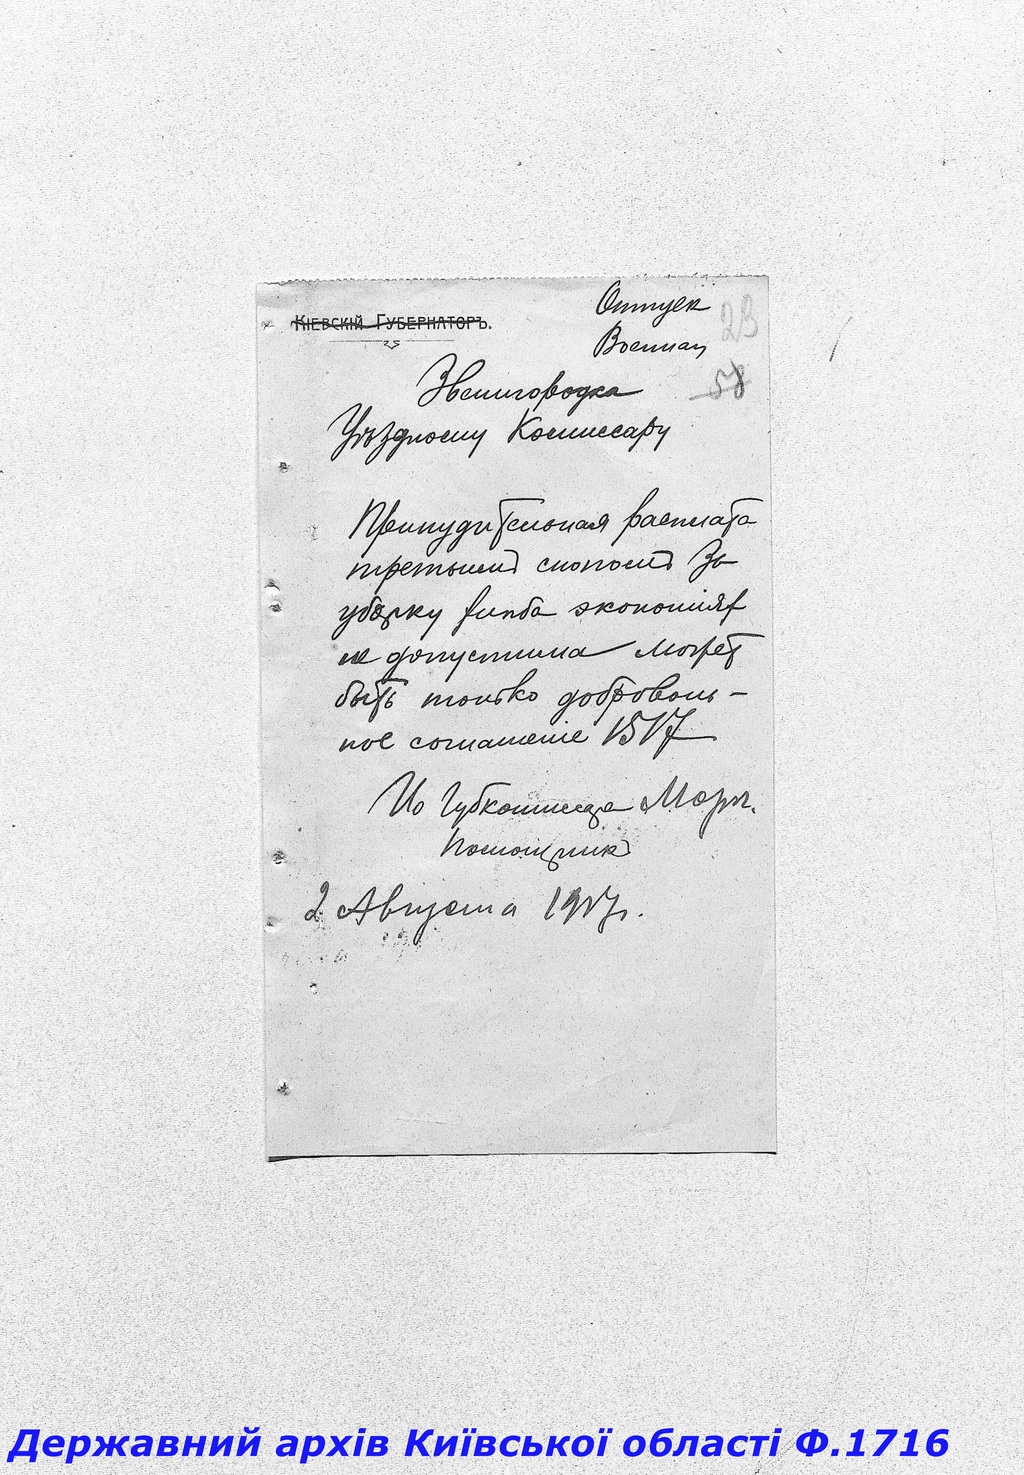 КІЕВСКІЙ ГУБЕРНАТОРЪ.
Отпуск
Военная
23
58
Звенигородка
Уѣздному Комиссару
Принудительная расплата
третьимъ снопомъ За
уборку хлѣба экономіях
не допустима может
быть только доброволь-
ное соглашеніе 1517
Ио Губкомиссара
Помощникъ
2 Августа 1917 г.
Державний архів Київської області Ф.1716